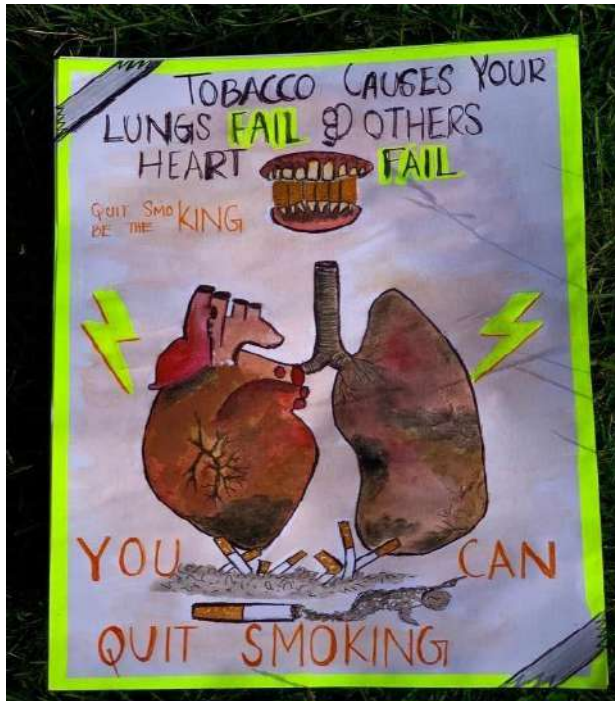 TOBACCO CAUSES YOUR
LUNGS FAIL & OTHERS
HEART FAIL
QUIT SMOKING
BE THE
YOU CAN
QUIT SMOKING